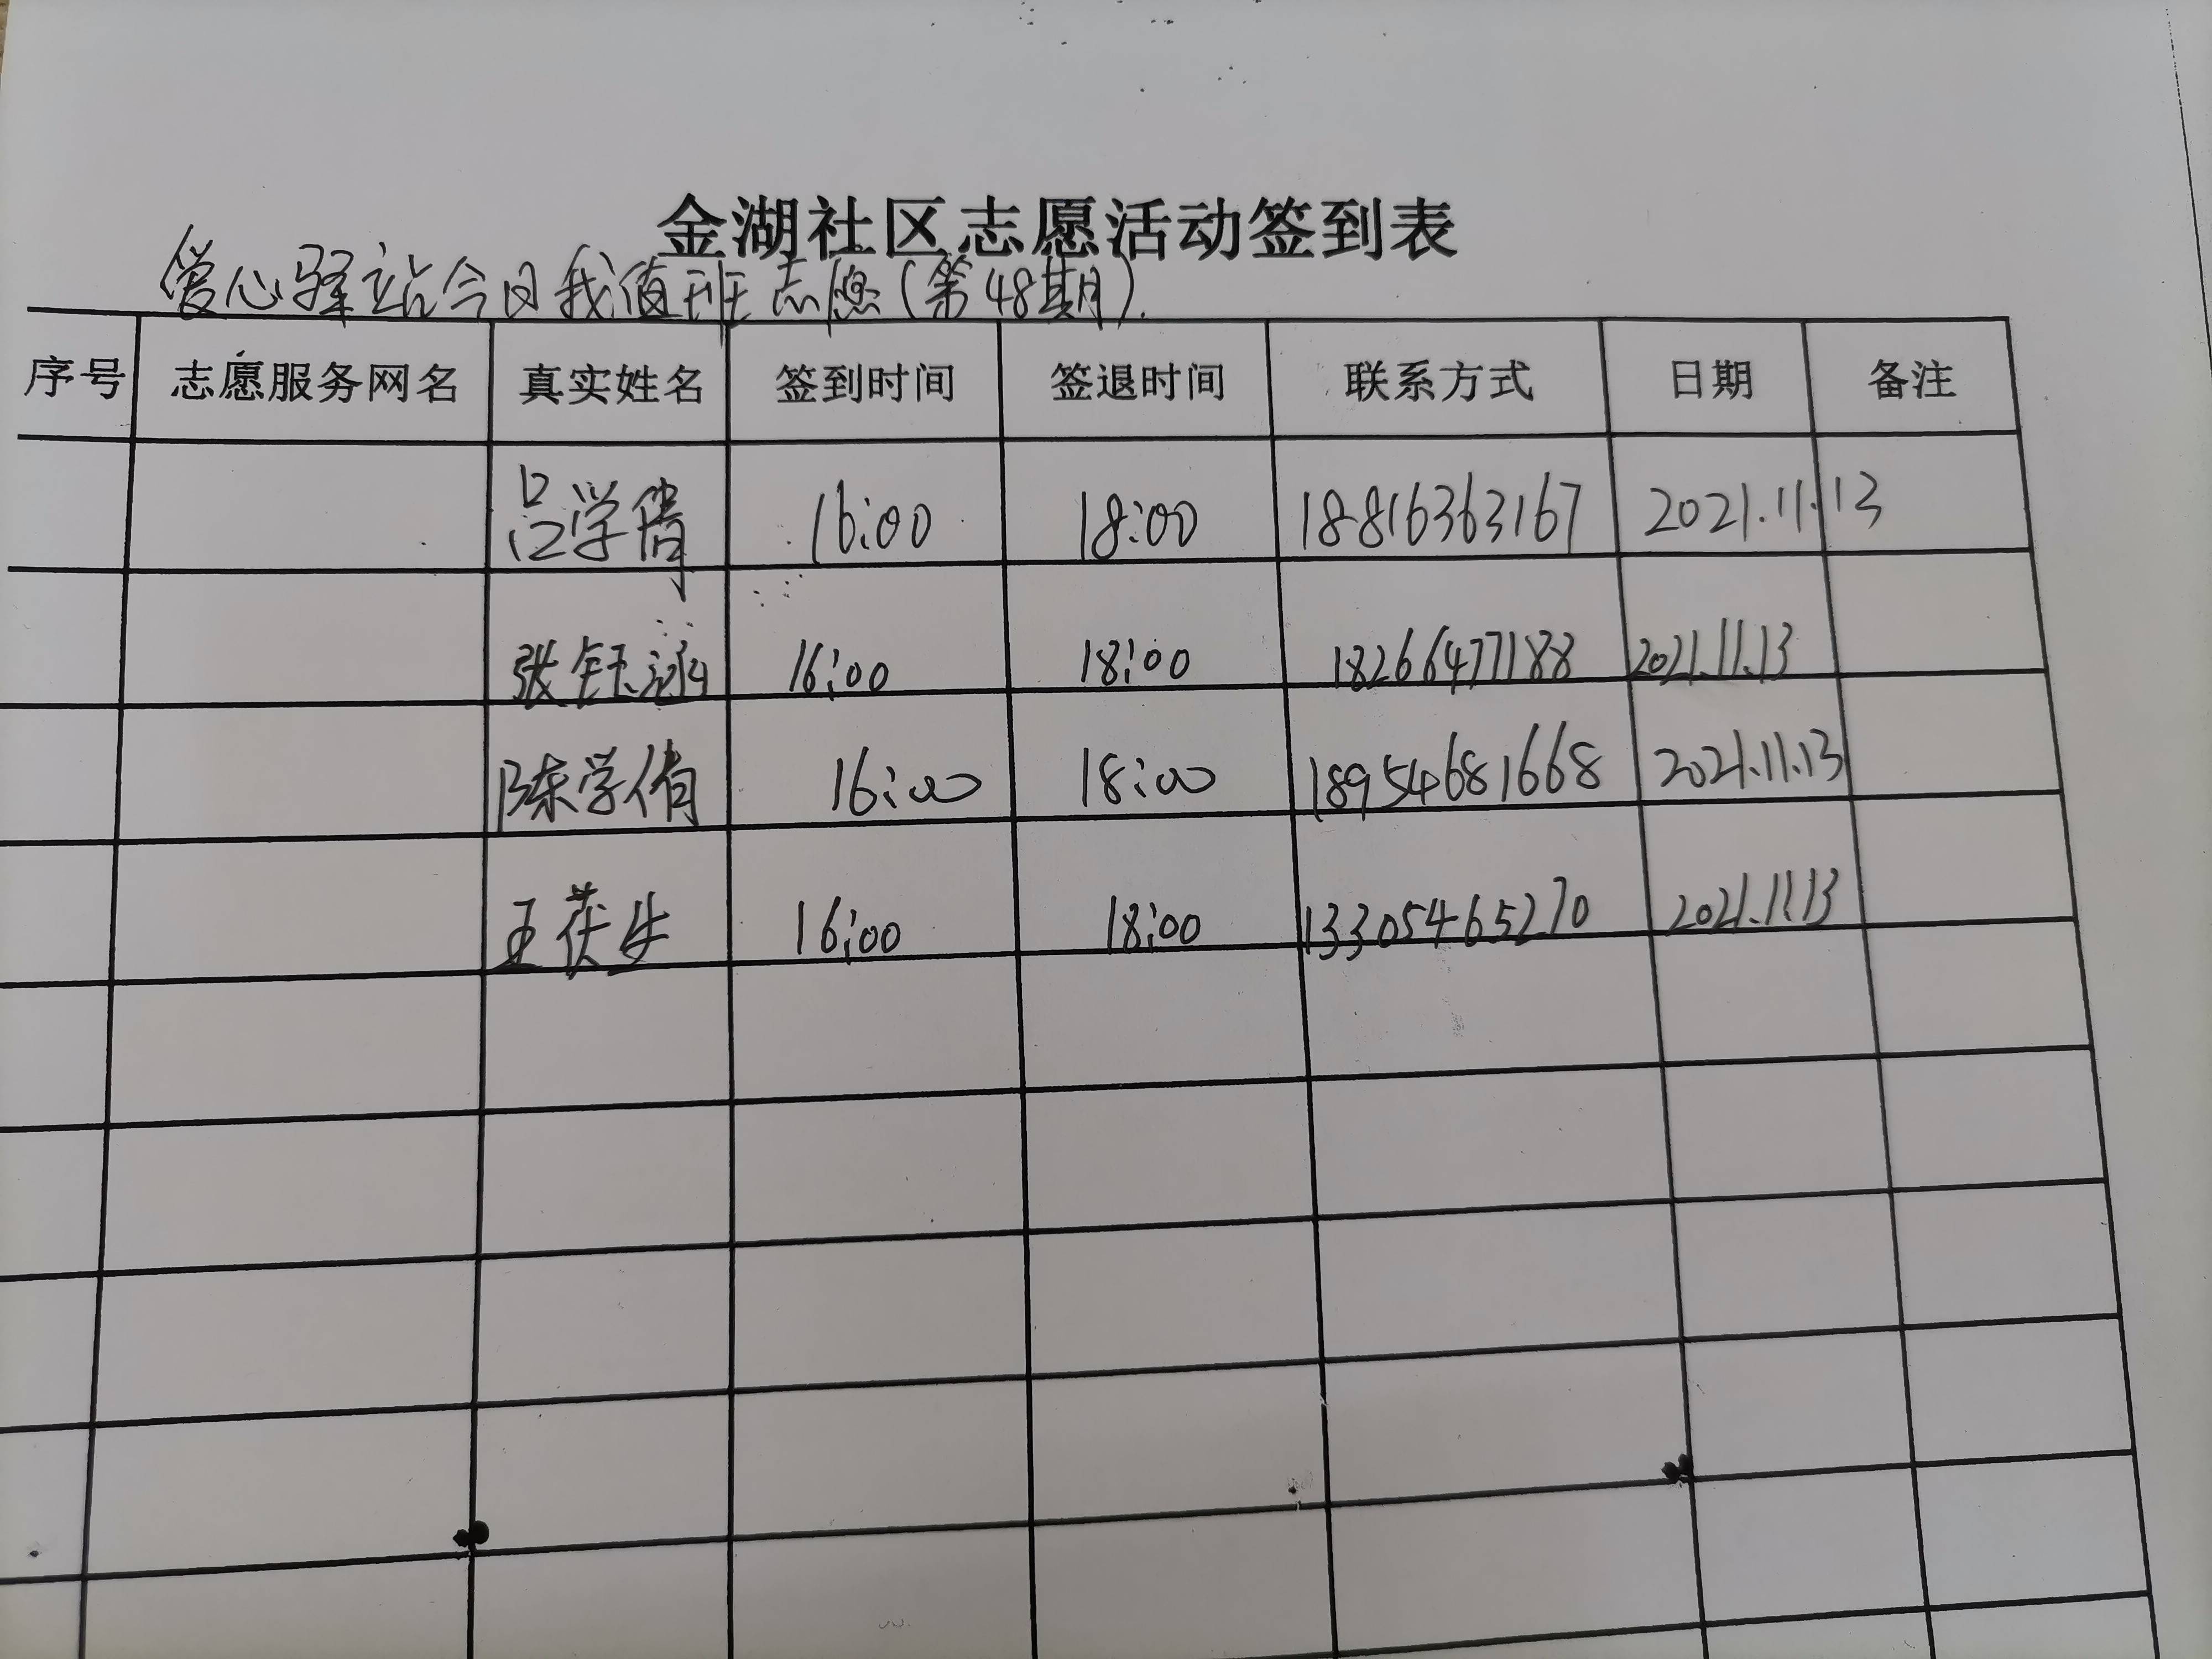 金湖社区志愿活动签到表
爱心驿站今日我值班志愿(第48期).
序号 志愿服务网名 真实姓名 签到时间 签退时间 联系方式 日期 备注
吕学倩 16:00 18:00 18816363167 2021.11.13
张钰泳 16:00 18:00 18266477188 2021.11.13
陈学俏 16:00 18:00 18954681668 2021.11.13
王茯生 16:00 18:00 13305465270 2021.11.13